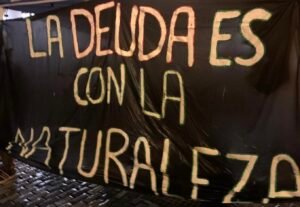 LA DEUDA ES
CON LA
NATURALEZA